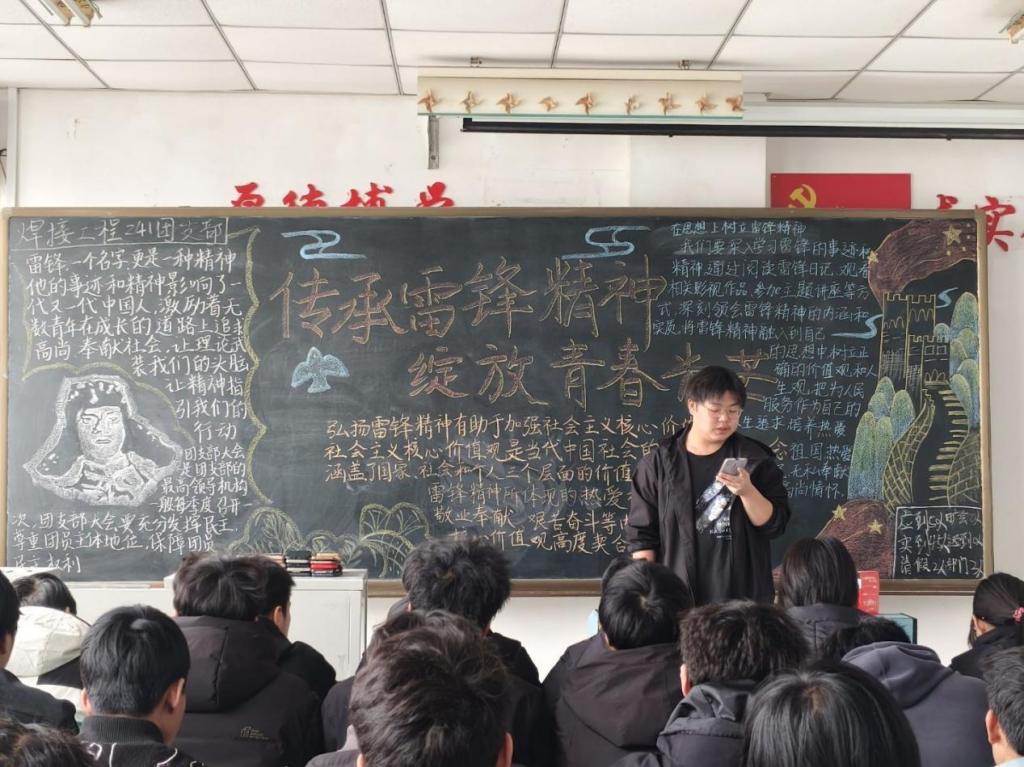 焊接工程241团支部
雷锋,一个名字,更是一种精神
他的事迹和精神影响了一
代又一代中国人,激励着无
数青年在成长的道路上追求
高尚 奉献社会 让理论武
装我们的头脑
让精神指
引我们的
行动
团支部大会
是团支部的
最高领导机构
一般每季度召开一
次,团支部大会要充分发挥民主,
尊重团员主体地位,保障团员
民主权利
传承雷锋精神
绽放青春
弘扬雷锋精神有助于加强社会主义核心价
社会主义核心价值观是当代中国社会的
涵盖了国家、社会和个人三个层面的价值
雷锋精神所体现的热爱
敬业奉献、艰苦奋斗等
核心价值观高度契合
在思想上树立雷锋精神
我们要深入学习雷锋的事迹和
精神,通过阅读雷锋日记、观看
相关影视作品、参加主题讲座等方
式,深刻领会雷锋精神的内涵和
实质,将雷锋精神融入到自己
的思想中树立正
确的价值观和人
生观,把为人民
服务作为自己的
生追求培养热爱
祖国热爱
无私奉献
高尚情怀.